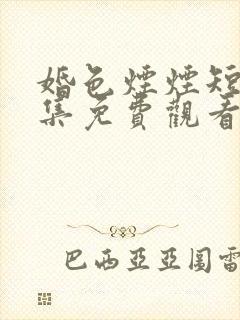 婚色煙煙短
集免費觀看
巴西亞亞圖雷